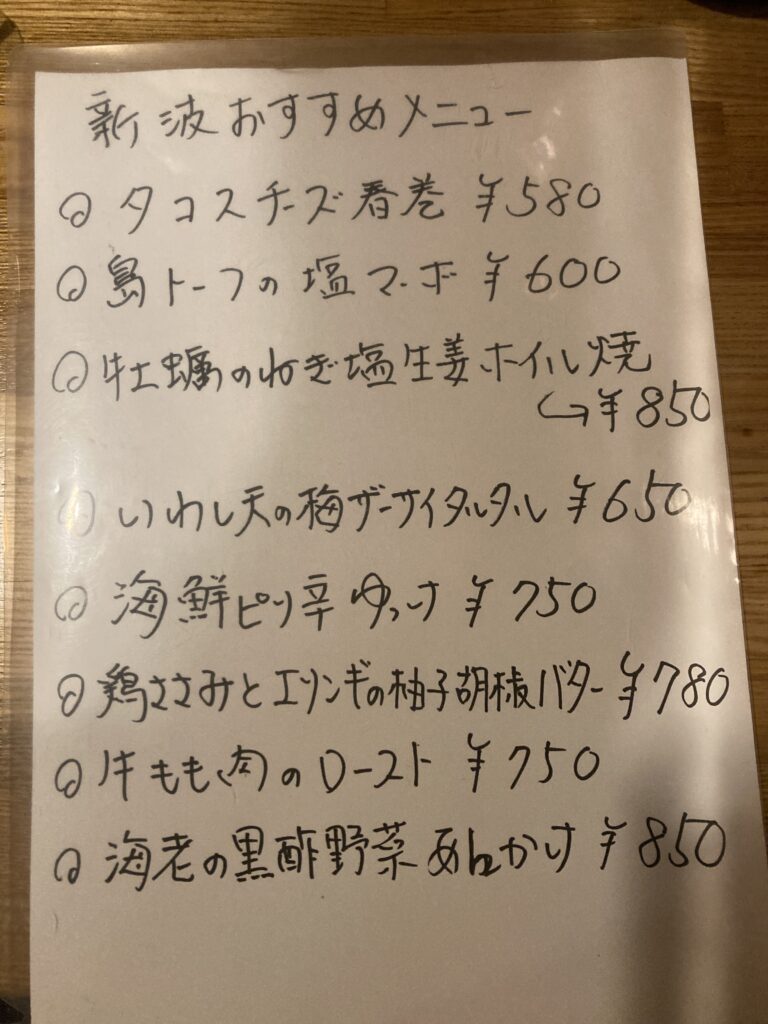 新波おすすめメニュー
◎ タコスチーズ春巻 ¥580
◎ 島トーフの塩マーボ ¥600
◎ 牡蠣のねぎ塩生姜ホイル焼
↪¥850
◎ いわし天の梅ザーサイタルタル ¥650
◎ 海鮮ピリ辛ゆっけ ¥750
◎ 鶏ささみとエリンギの柚子胡椒バター ¥780
◎ 牛もも肉のロースト ¥750
◎ 海老の黒酢野菜あんかけ ¥850